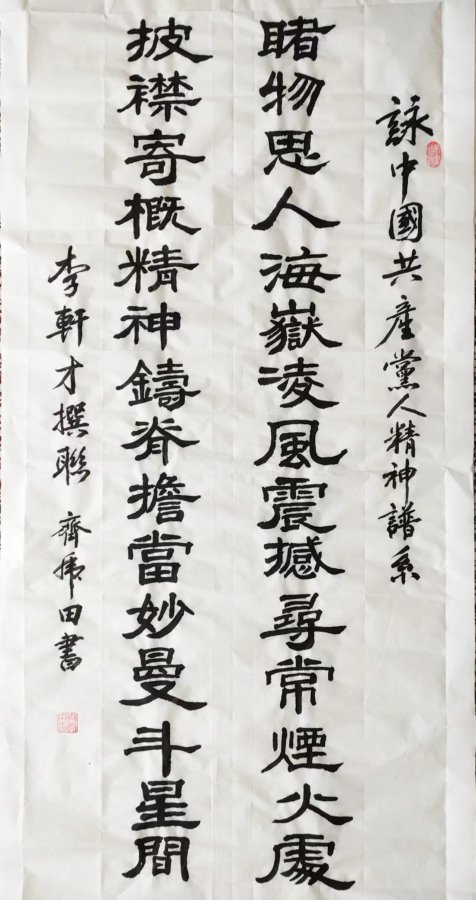 詠中國共產黨人精神譜系
睹物思人海嶽凌風震撼尋常煙火處
披襟寄概精神鑄脊擔當妙曼斗星間
李軒才撰聯 齊虎田書